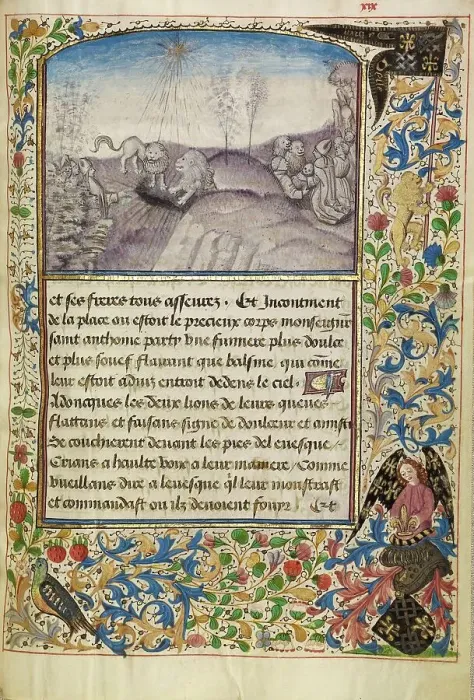 xix
et ses freres tous asseurez . Et Incontinent
de la place ou estoit le precieux corps monseigneur
saint anthoine party vne fumiere plus doulce
et plus souef flairant que balsme, qui cõme
leur estoit aduiz entroit dedens le ciel
Adoncques les deux lions de leurs queues
flattans et faisans signe de doulceur et amisti
Se couchierent deuant les pies del euesque
Crians a haulte voix a leur maniere Comme
vueillans dire a leuesque ql leur monstrast
et commandast ou ilz deuoient fouyr . Et